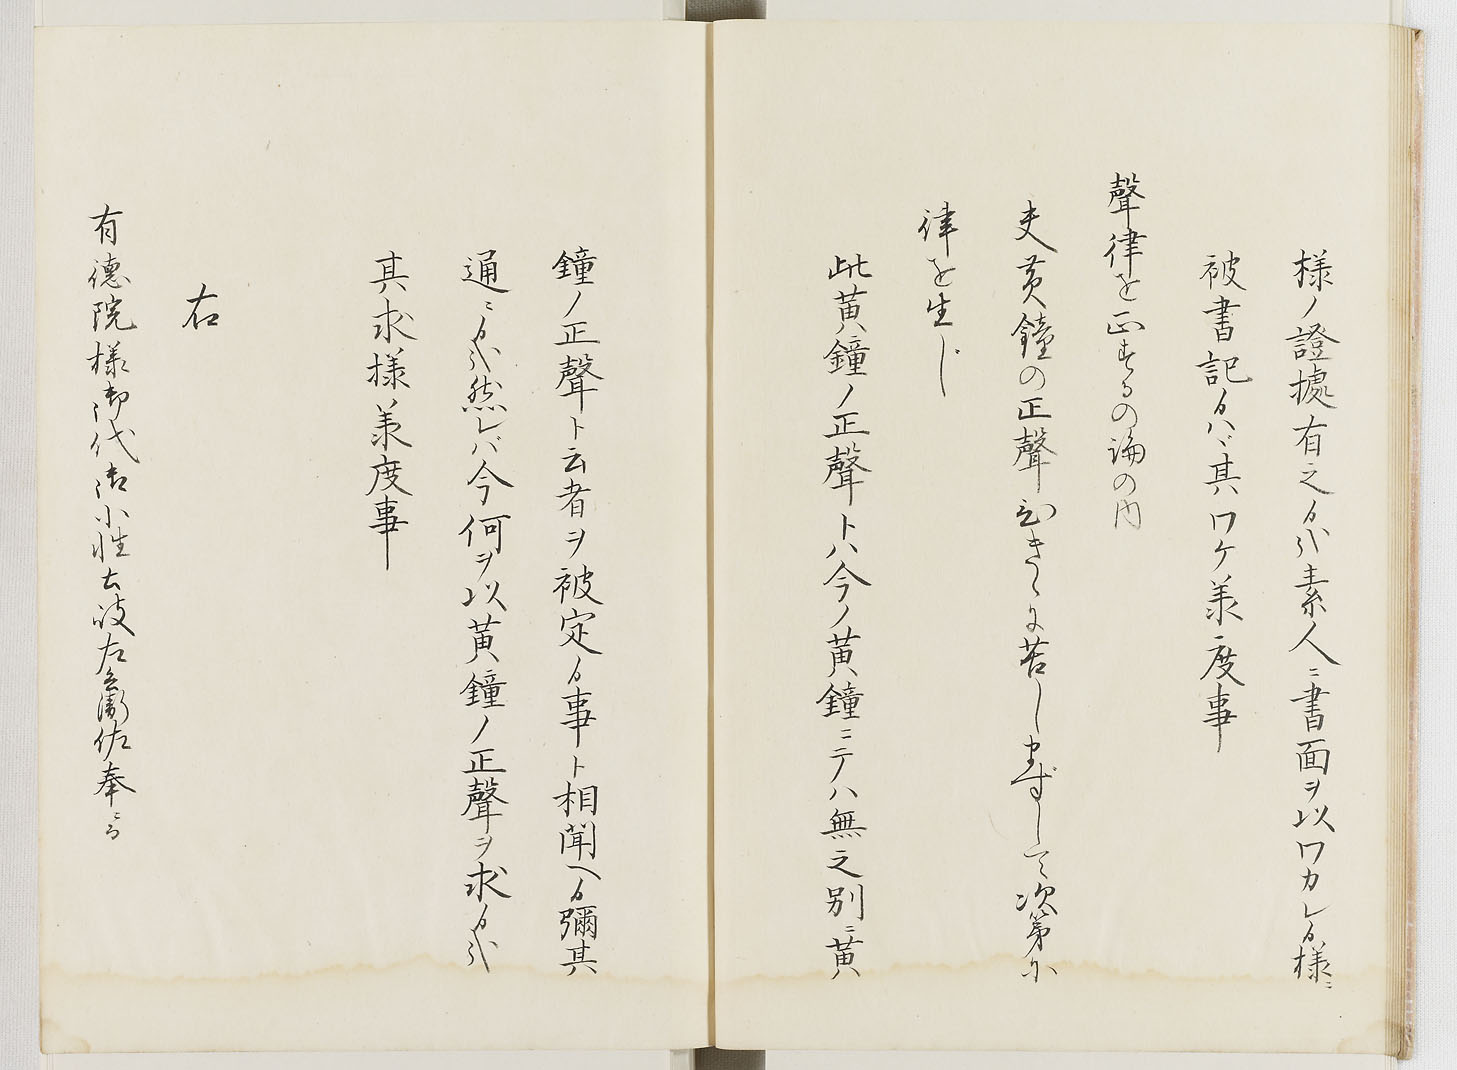 様ノ證據有之候ハヾ素人ニ書面ヲ以ワカレ候様ニ
被書記候ハヾ其ワケ羕度事
聲律を正するの論の内
夫黄鐘の正聲ひきゝに苦しまずして次第に
律を生じ
此黄鐘ノ正聲トハ今ノ黄鐘ニテハ無之別ニ黄
鐘ノ正聲ト云者ヲ被定候事ト相聞ヘ候彌其
通ニ候ハヾ然レバ今何ヲ以黄鐘ノ正聲ヲ求候ハヾ
其求様羕度事
右
有德院様御代御小性土岐左兵衛佐奉る